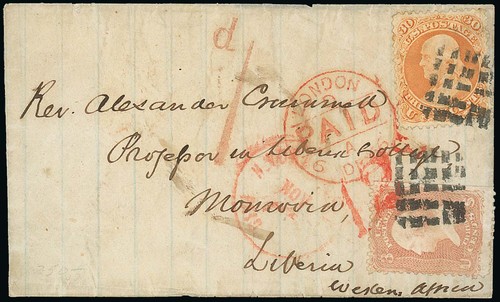 d
1
30 30
U.S. POSTAGE
LONDON
PAID
Rev. Alexander Crummell
Professor in Liberia College
Monrovia,
Liberia
Western Africa